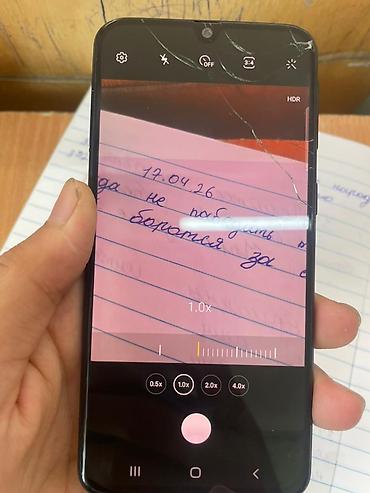 OFF
3:4
HDR
17.04 26
да не победить
борются за
1.0x
0.5x 1.0x 2.0x 4.0x
народ